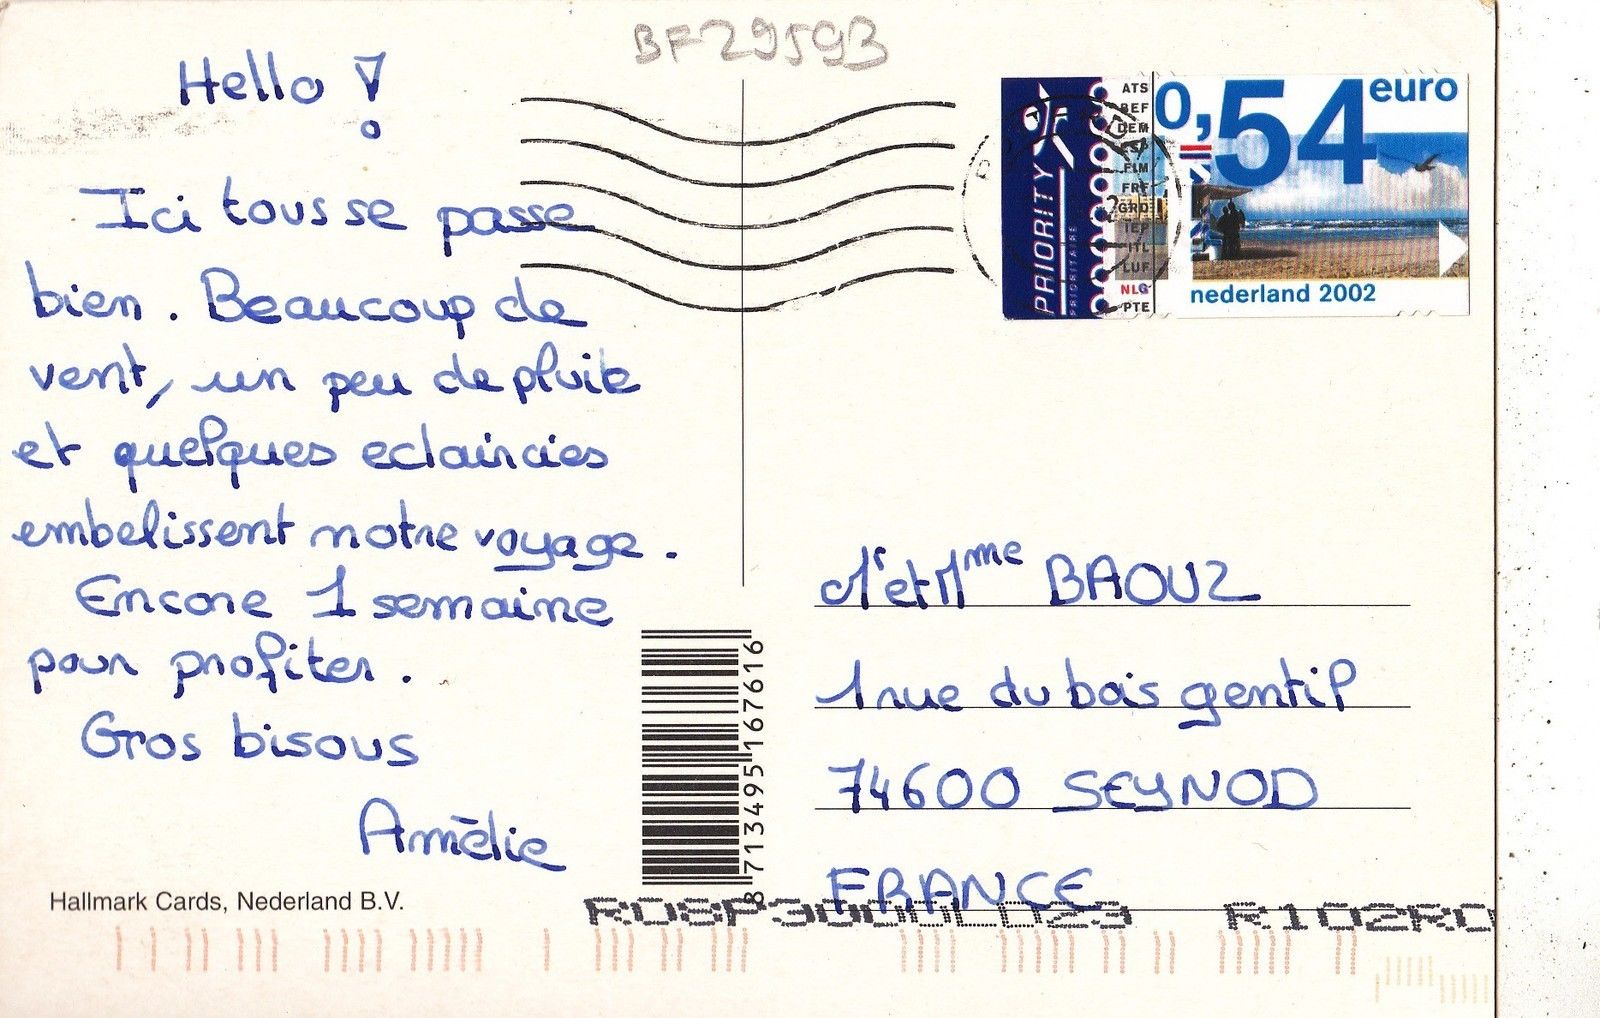 BF29593
Hello !
Ici tous se passe
bien. Beaucoup de
vent, un peu de pluie
et quelques eclaircies
embelissent notre voyage.
Encore 1 semaine
pour profiter.
Gros bisous
Amélie
Hallmark Cards, Nederland B.V.
8 713495 167616
PRIORITY
PRIORITAIRE
ATS
BEF
DEM
ESP
FIM
FRF
GRD
IEP
ITL
LUF
NLG
PTE
0,54 euro
nederland 2002
Mr et Mme BAOUZ
1 rue du bois gentil
74600 SEYNOD
FRANCE
R102RO